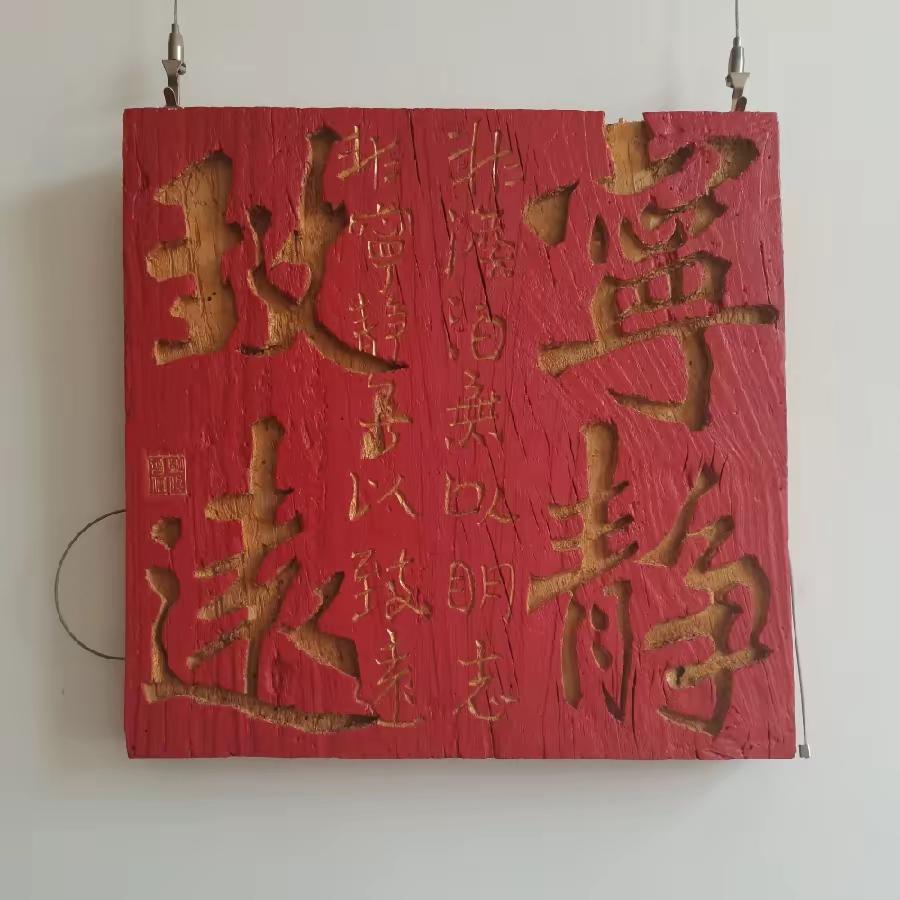 寧静
非澹泊無以明志
非寧静無以致遠
致遠